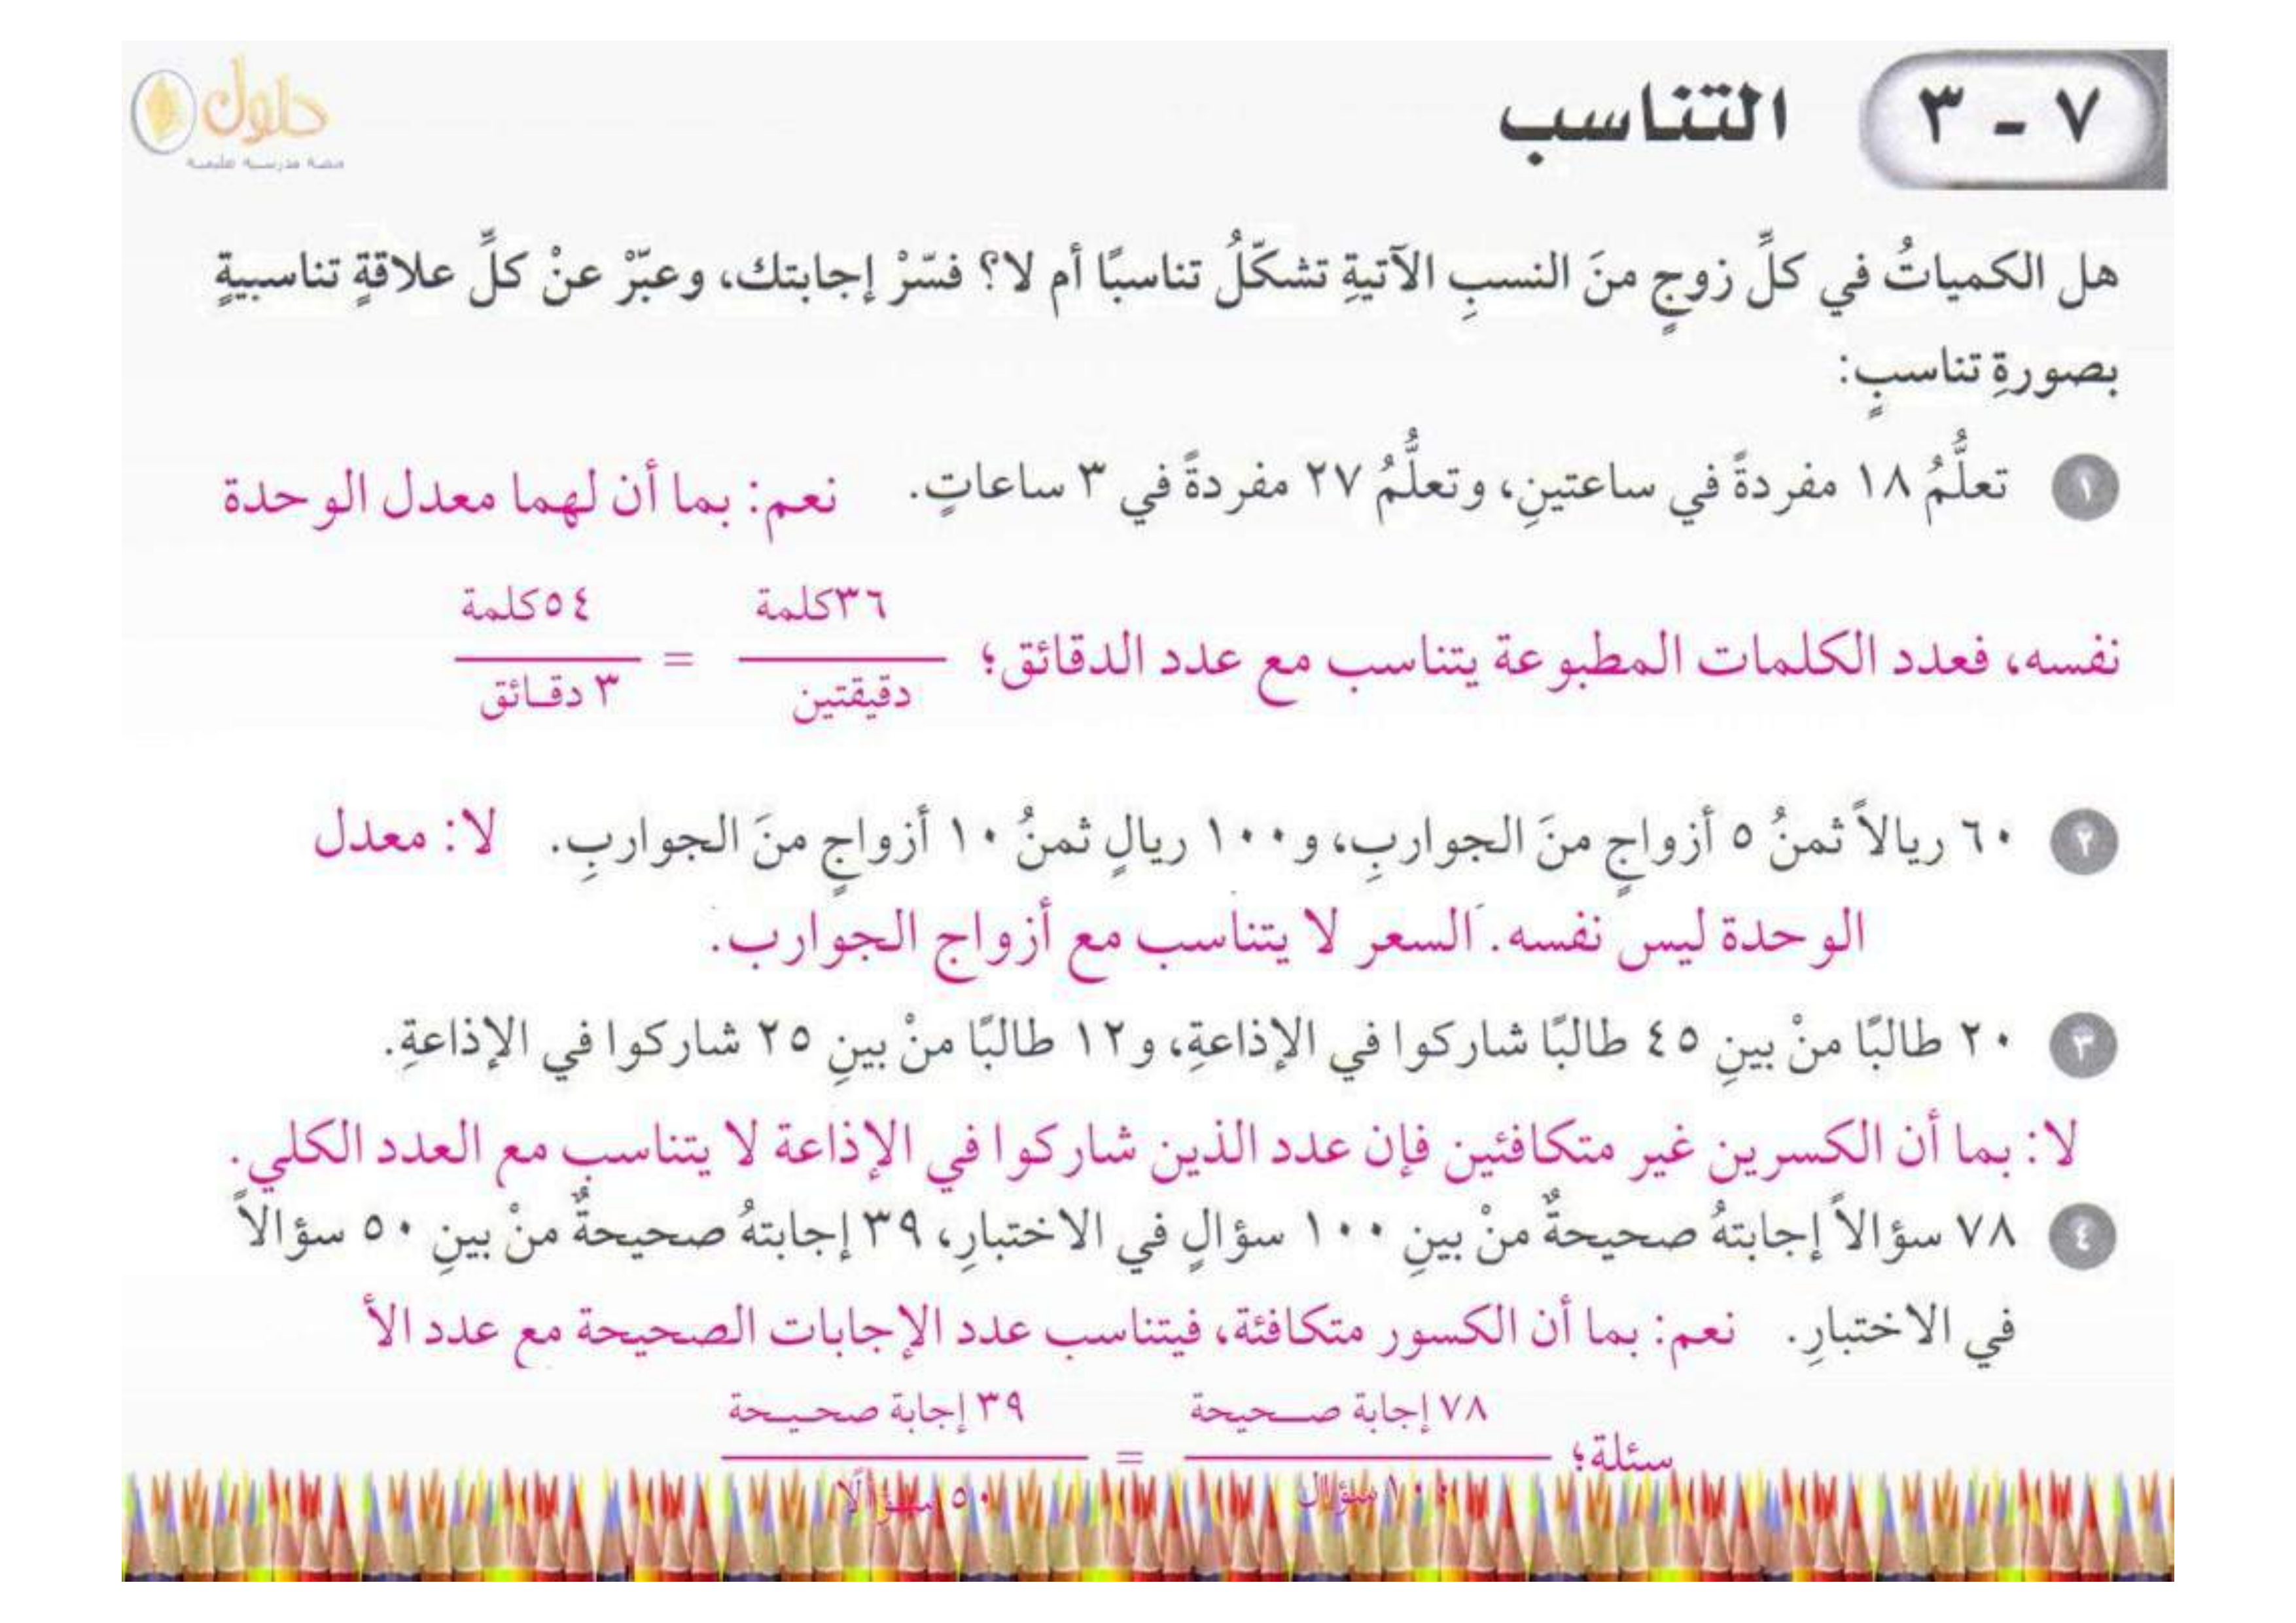 حلول
منصة مدرستي تعليمية
٧ - ٣ التناسب
هل الكمياتُ في كلِّ زوجٍ منَ النسبِ الآتيةِ تشكّلُ تناسبًا أم لا؟ فسّرْ إجابتك، وعبّرْ عنْ كلِّ علاقةٍ تناسبيةٍ
بصورةِ تناسبٍ:
١ تعلُّمُ ١٨ مفردةً في ساعتينِ، وتعلُّمُ ٢٧ مفردةً في ٣ ساعاتٍ. نعم: بما أن لهما معدل الوحدة
نفسه، فعدد الكلمات المطبوعة يتناسب مع عدد الدقائق؛ ٣٦كلمة / دقيقتين = ٥٤كلمة / ٣ دقائق
٢ ٦٠ ريالاً ثمنُ ٥ أزواجٍ منَ الجواربِ، و١٠٠ ريالٍ ثمنُ ١٠ أزواجٍ منَ الجواربِ. لا: معدل
الوحدة ليس نفسه. السعر لا يتناسب مع أزواج الجوارب.
٣ ٢٠ طالبًا منْ بينِ ٤٥ طالبًا شاركوا في الإذاعةِ، و١٢ طالبًا منْ بينِ ٢٥ شاركوا في الإذاعةِ.
لا: بما أن الكسرين غير متكافئين فإن عدد الذين شاركوا في الإذاعة لا يتناسب مع العدد الكلي.
٤ ٧٨ سؤالاً إجابتهُ صحيحةٌ منْ بينِ ١٠٠ سؤالٍ في الاختبارِ، ٣٩ إجابتهُ صحيحةٌ منْ بينِ ٥٠ سؤالاً
في الاختبارِ. نعم: بما أن الكسور متكافئة، فيتناسب عدد الإجابات الصحيحة مع عدد الأ
سئلة؛ ٧٨ إجابة صحيحة / ١٠٠ سؤال = ٣٩ إجابة صحيحة / ٥٠ سؤالًا